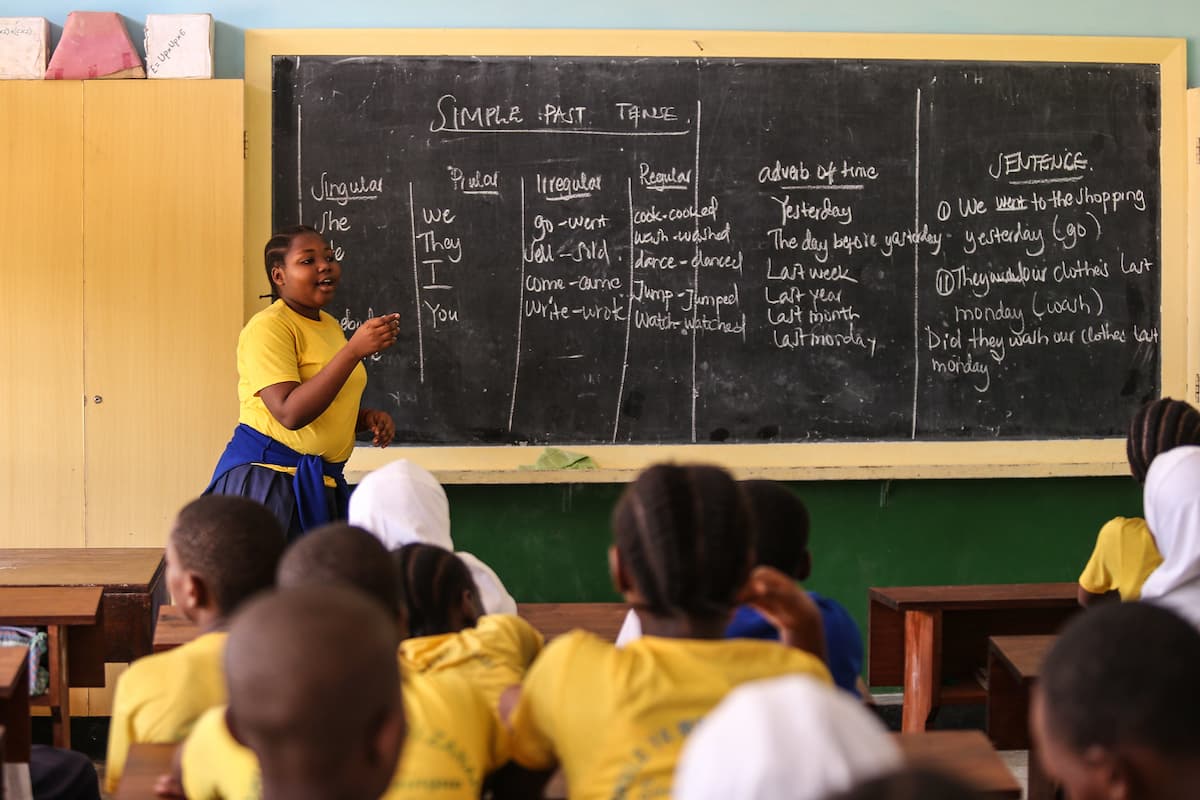 SIMPLE PAST TENSE
Singular
She
Plular
We
They
I
You
Irregular
go-went
Sell-Sold.
come-came
write-wrote
Regular
cook-cooked
wash-washed
dance-danced
Jump-Jumped
Watch-watched
adverb of time
Yesterday
The day before yesterday
Last week
Last year
Last month
last monday
SENTENCE
① We went to the shopping
yesterday (go)
⑪ They our clothes last
monday (wash)
Did they wash our clothes last
monday